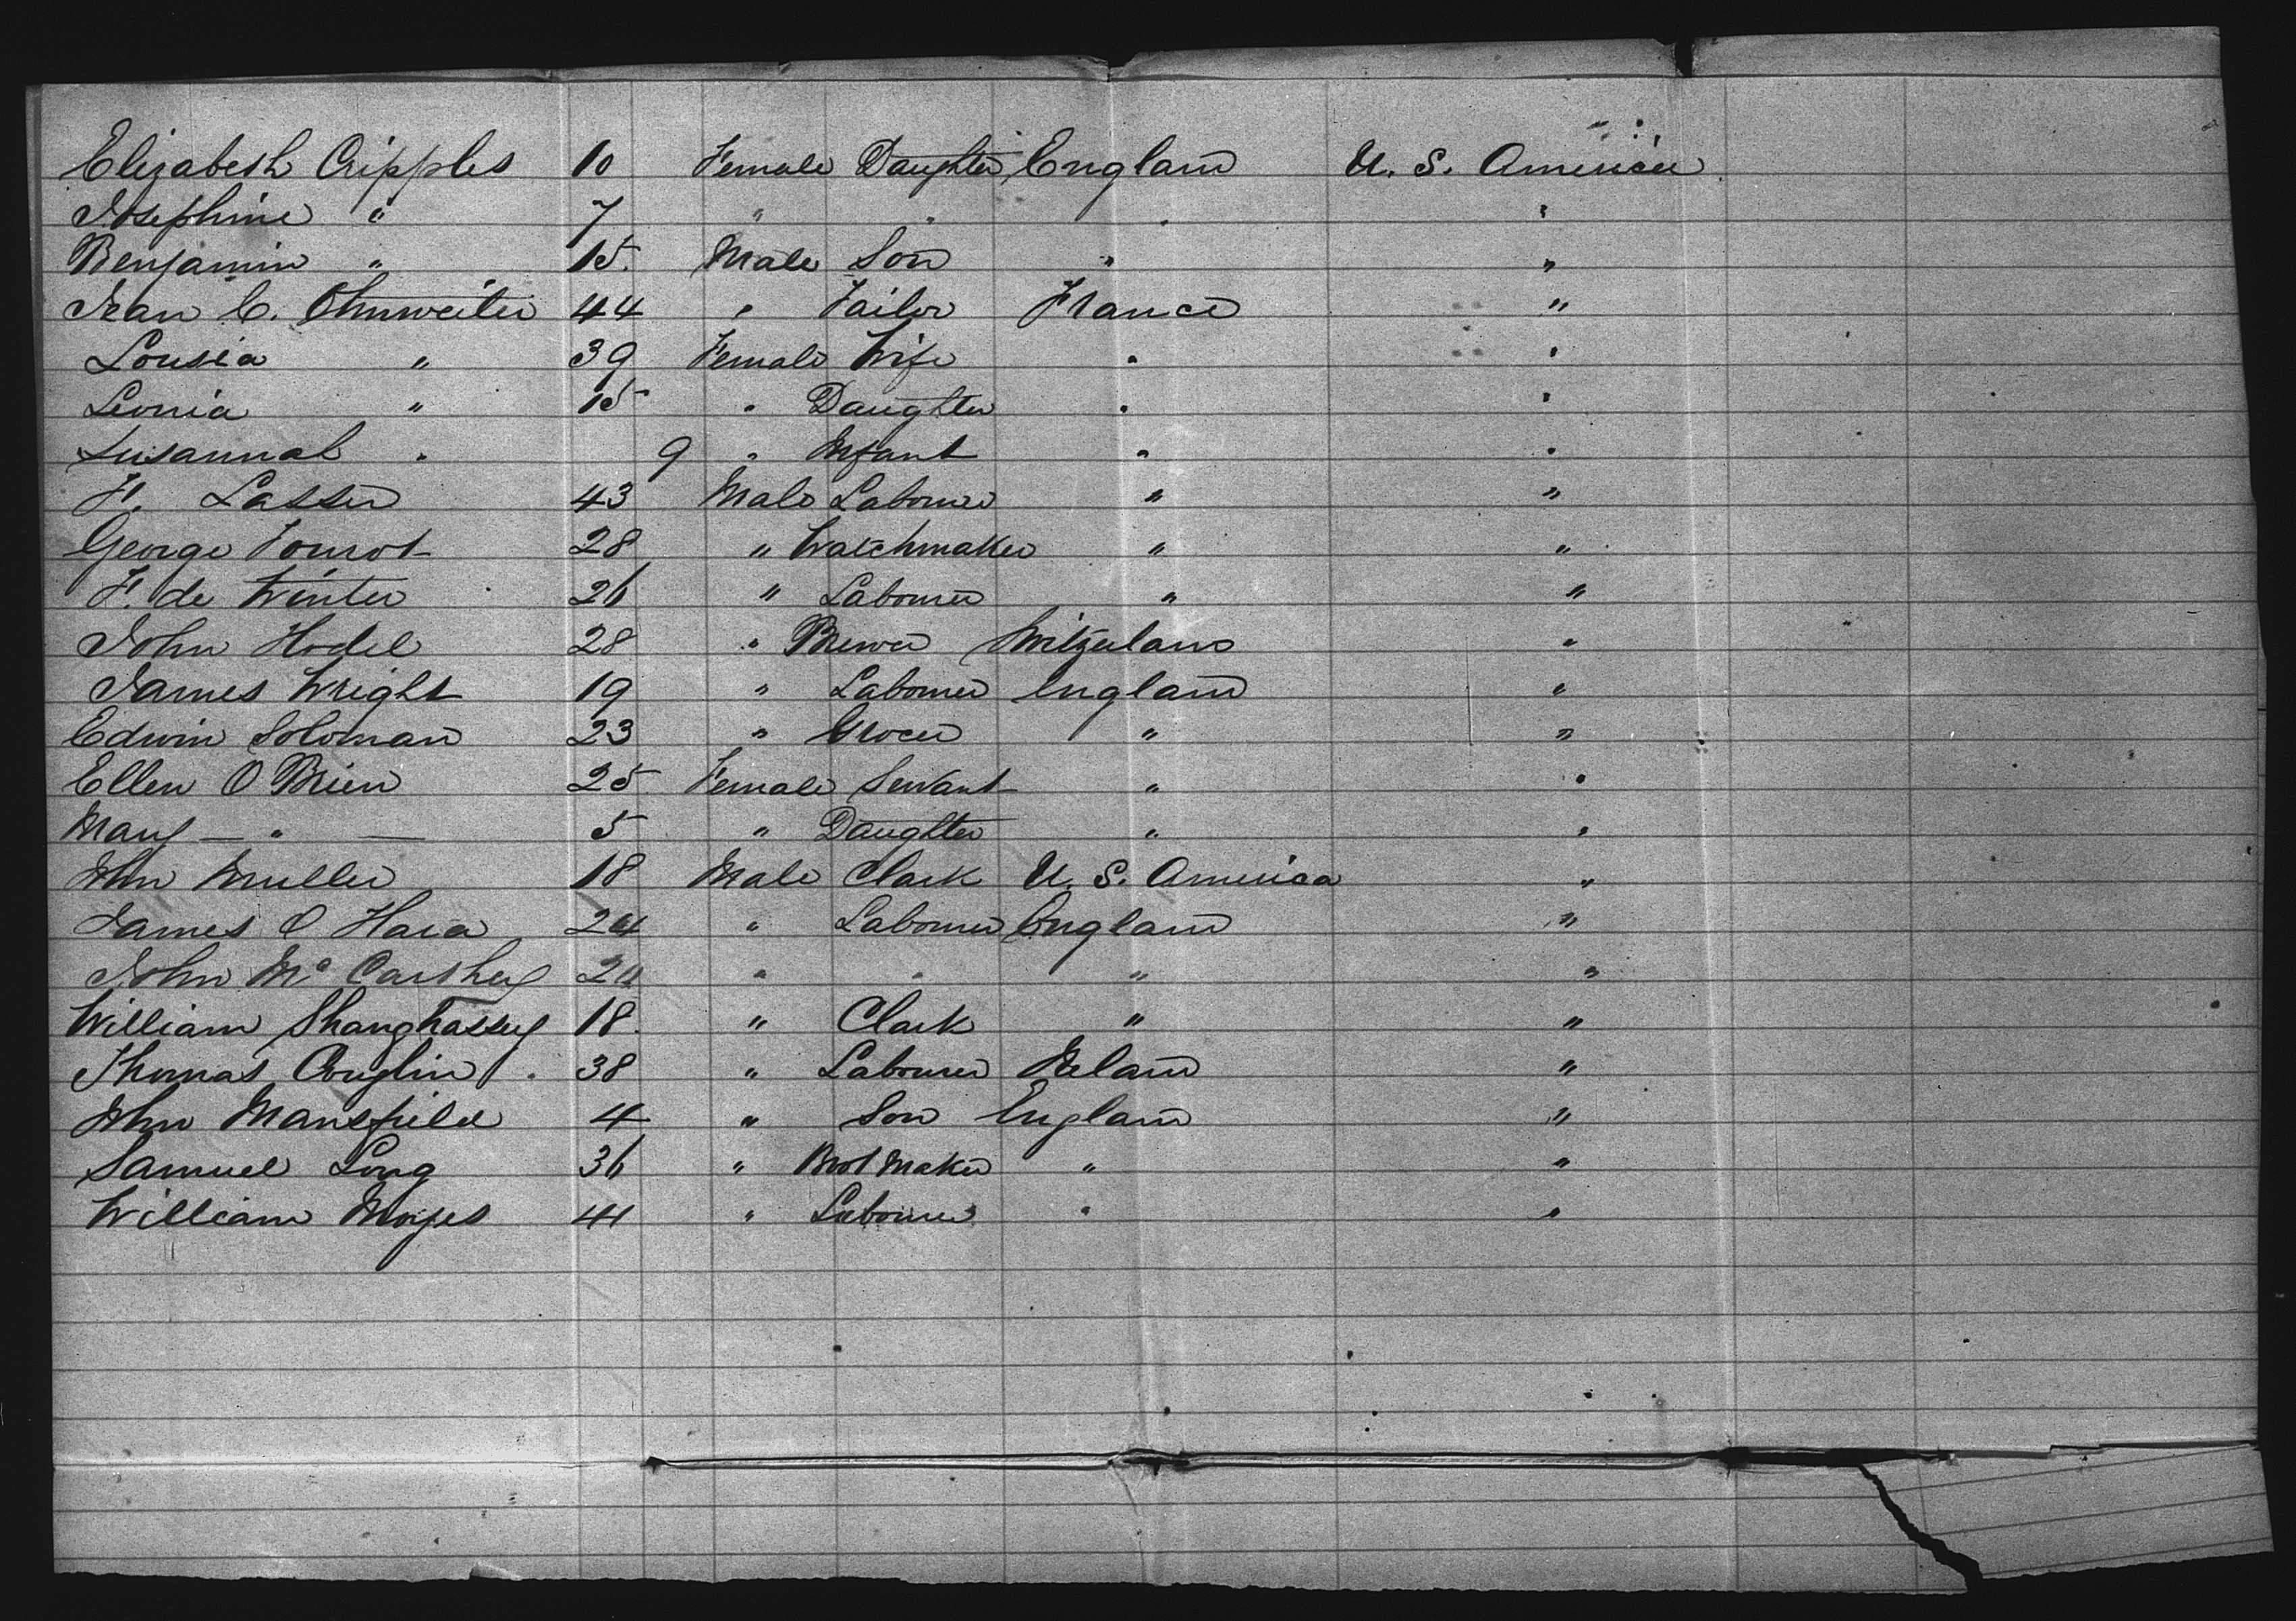 Elizabeth Cripples 10 Female Daughter England U. S. America
Josephine " 7 " " " "
Benjamin " 15. Male Son " "
Jean C. Ohnweiler 44 " Tailor France "
Lousia " 39 Female Wife " "
Leonia " 15 " Daughter " "
Susannah " 9 " Infant " "
F. Lasser 43 Male Labourer " "
George 28 " Watchmaker " "
F. de Winter 26 " Labourer " "
John Hodel 28 " Brewer Switzerland "
James Wright 19 " Labourer England "
Edwin Soloman 23 " Grocer " "
Ellen O Brien 25 Female Servant " "
Mary — " — 5 " Daughter " "
John Muller 18 Male Clark U. S. America "
James O Hara 24 " Labourer England "
John Mc Carthey " " " "
William Shanghassey 18. " Clark " "
Thomas Conglin 38 " Labourer Ireland "
John Mansfield 4 " Son England "
Samuel Long 36 " Boot Maker " "
William Moyes " Labourer " "